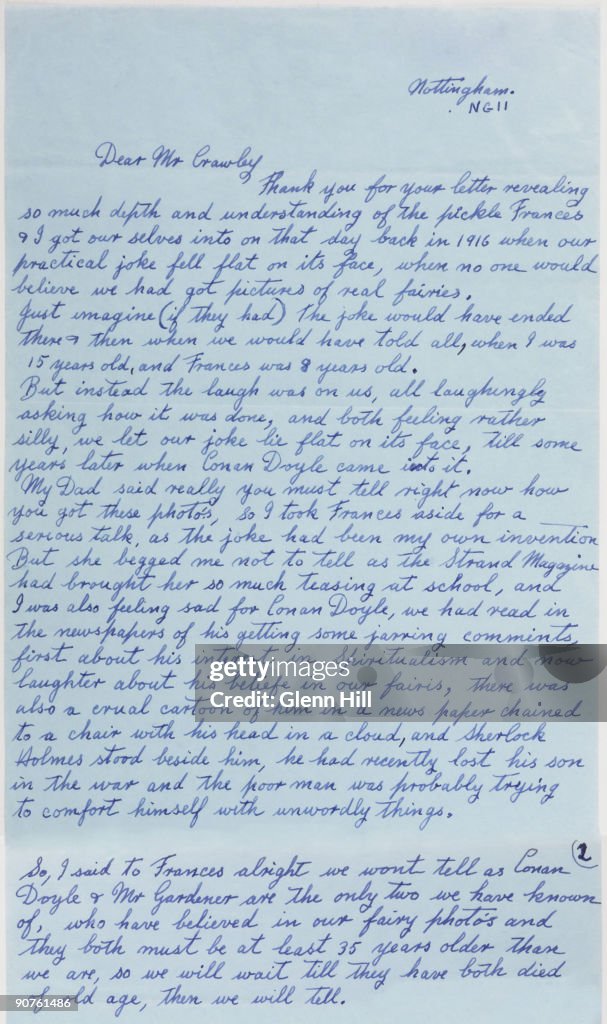 Nottingham.
NG11
Dear Mr Crawley
Thank you for your letter revealing
so much depth and understanding of the pickle Frances
& I got our selves into on that day back in 1916 when our
practical joke fell flat on its face, when no one would
believe we had got pictures of real fairies.
Just imagine (if they had) the joke would have ended
there & then when we would have told all, when I was
15 years old, and Frances was 8 years old.
But instead the laugh was on us, all laughingly
asking how it was done, and both feeling rather
silly, we let our joke lie flat on its face, till some
years later when Conan Doyle came into it.
My Dad said really you must tell right now how
you got these photo's, so I took Frances aside for a
serious talk, as the joke had been my own invention
But she begged me not to tell as the Strand Magazine
had brought her so much teasing at school, and
I was also feeling sad for Conan Doyle, we had read in
the newspapers of his getting some jarring comments,
first about his interest in Spiritualism and now
laughter about his beliefe in our fairis, there was
also a crual cartoon of him in a news paper chained
to a chair with his head in a cloud, and Sherlock
Holmes stood beside him, he had recently lost his son
in the war and the poor man was probably trying
to comfort himself with unwordly things.
2
So, I said to Frances alright we wont tell as Conan
Doyle & Mr Gardener are the only two we have known
of, who have believed in our fairy photo's and
they both must be at least 35 years older than
we are, so we will wait till they have both died
of old age, then we will tell.
gettyimages
Credit: Glenn Hill
90761486